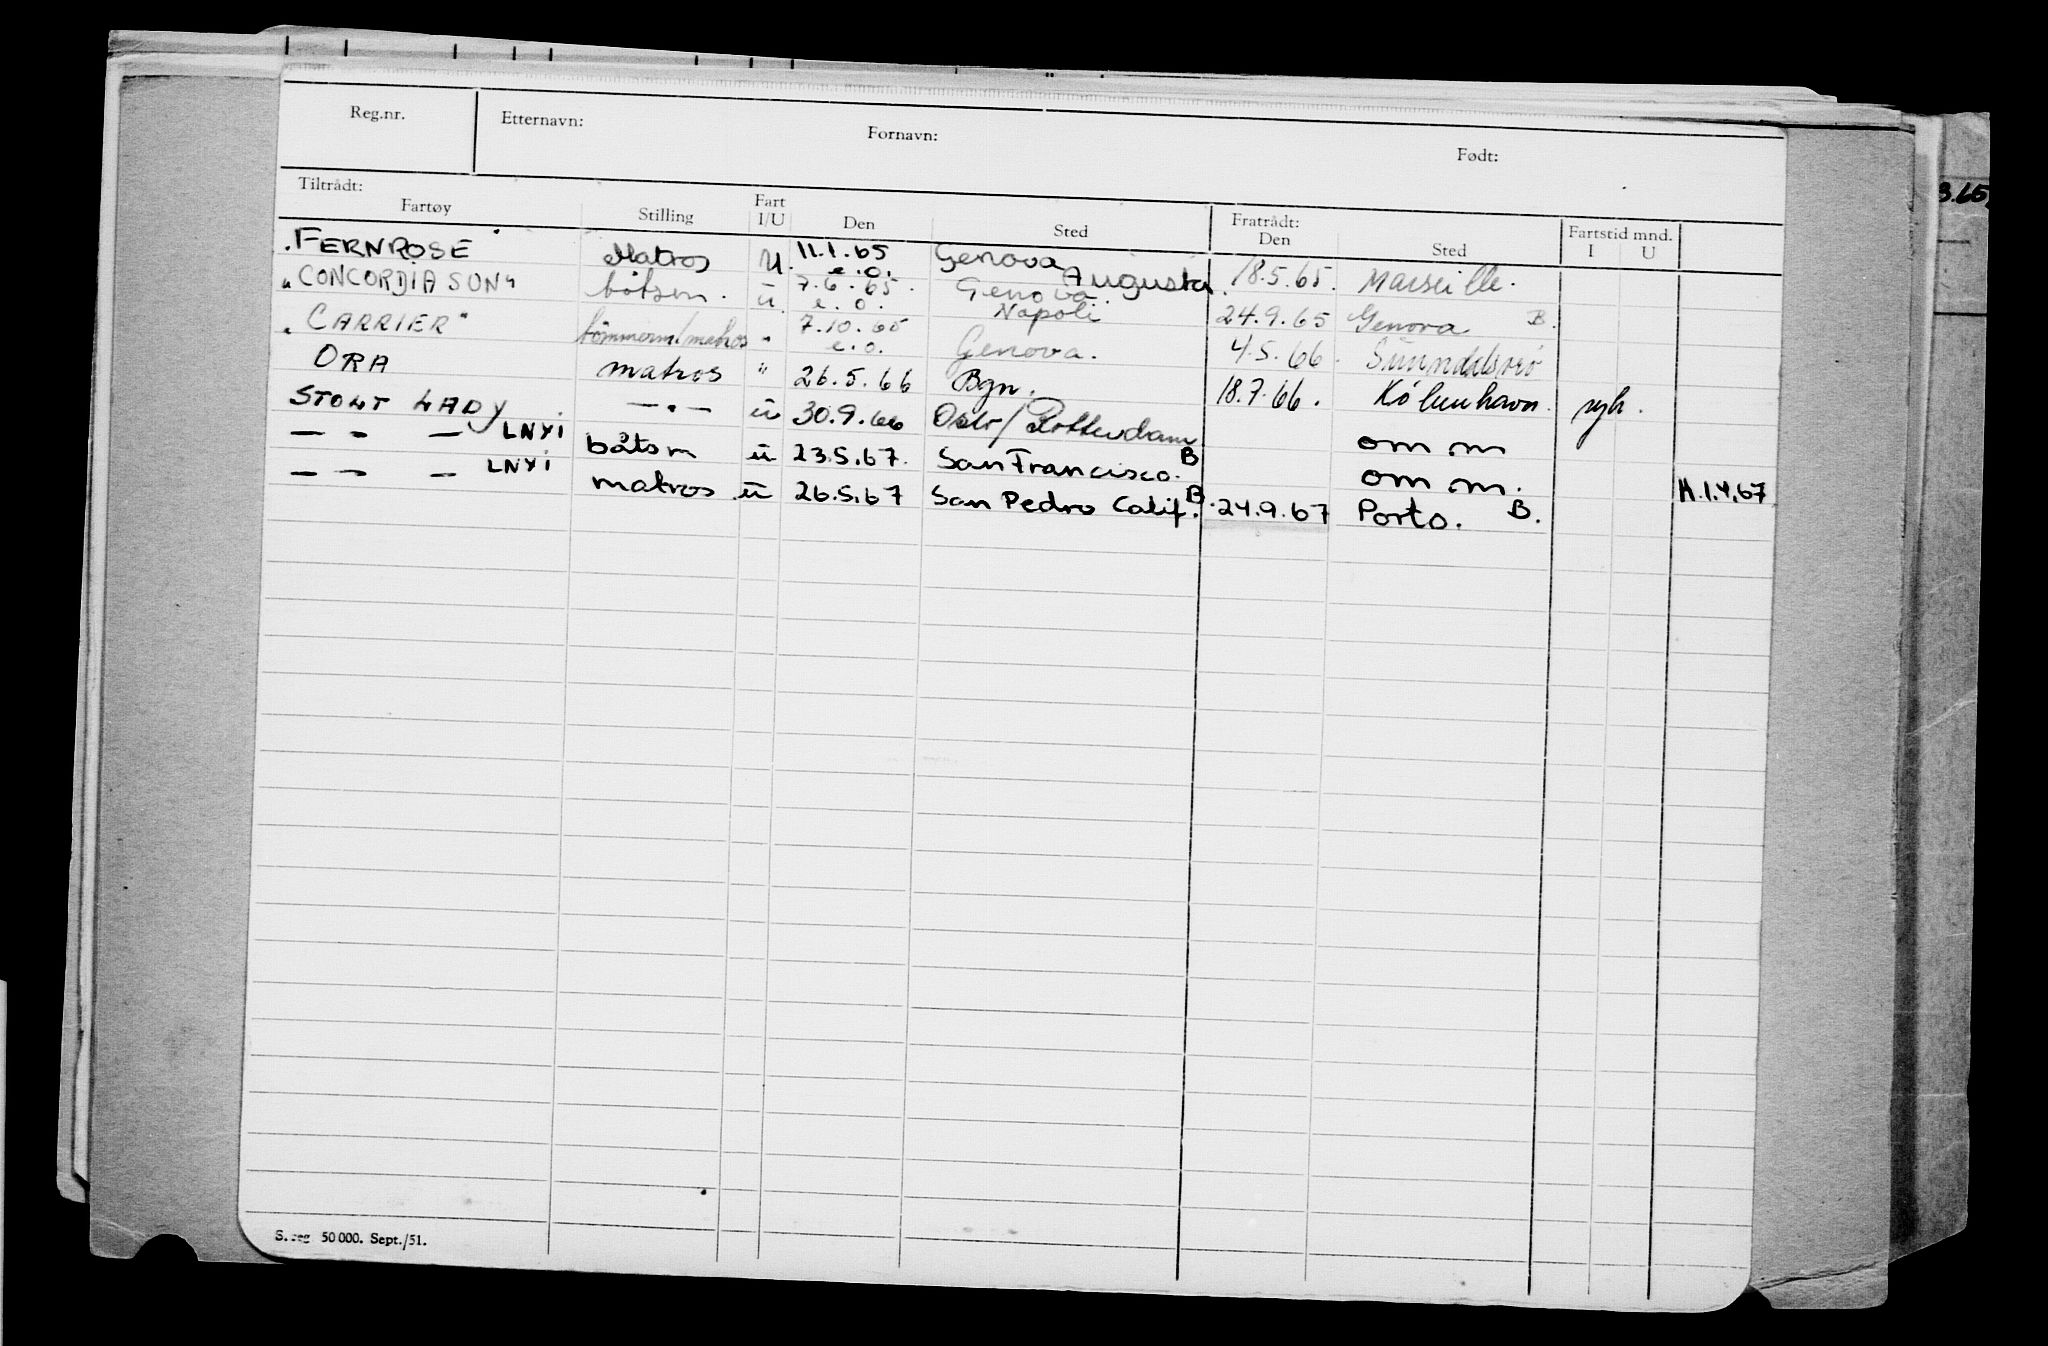 Reg.nr. Etternavn: Fornavn: Født:
Tiltrådt: Fratrådt:
Fartøy Stilling Fart I/U Den Sted Den Sted Fartstid mnd. I U
"FERNROSE" Matros U. 11.1.65 e.o. Genova Augusta 18.5.65. Marseille.
"CONCORDIA SUN" båtsm. ū 7.6.65. e.o. Genova. Napoli 24.9.65 Genova B.
"CARRIER" tømmerm/matros " 7.10.65 e.o. Genova. 4.5.66.
ORA matros " 26.5.66 Bgn. 18.7.66. København. syk.
STOLT LADY. — " — ū 30.9.66 Oslo/Rotterdam om m
— " — LNYI båtsm ū 23.5.67. San Francisco. B om m.
— " — LNYI matros ū 26.5.67 San Pedro Calif. B. 24.9.67 Porto. B. H.1.4.67
S. reg 50 000. Sept./51.
3.65.